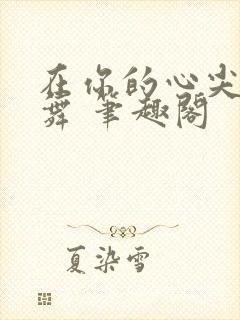 在你的心尖
舞 笔趣阁
夏染雪